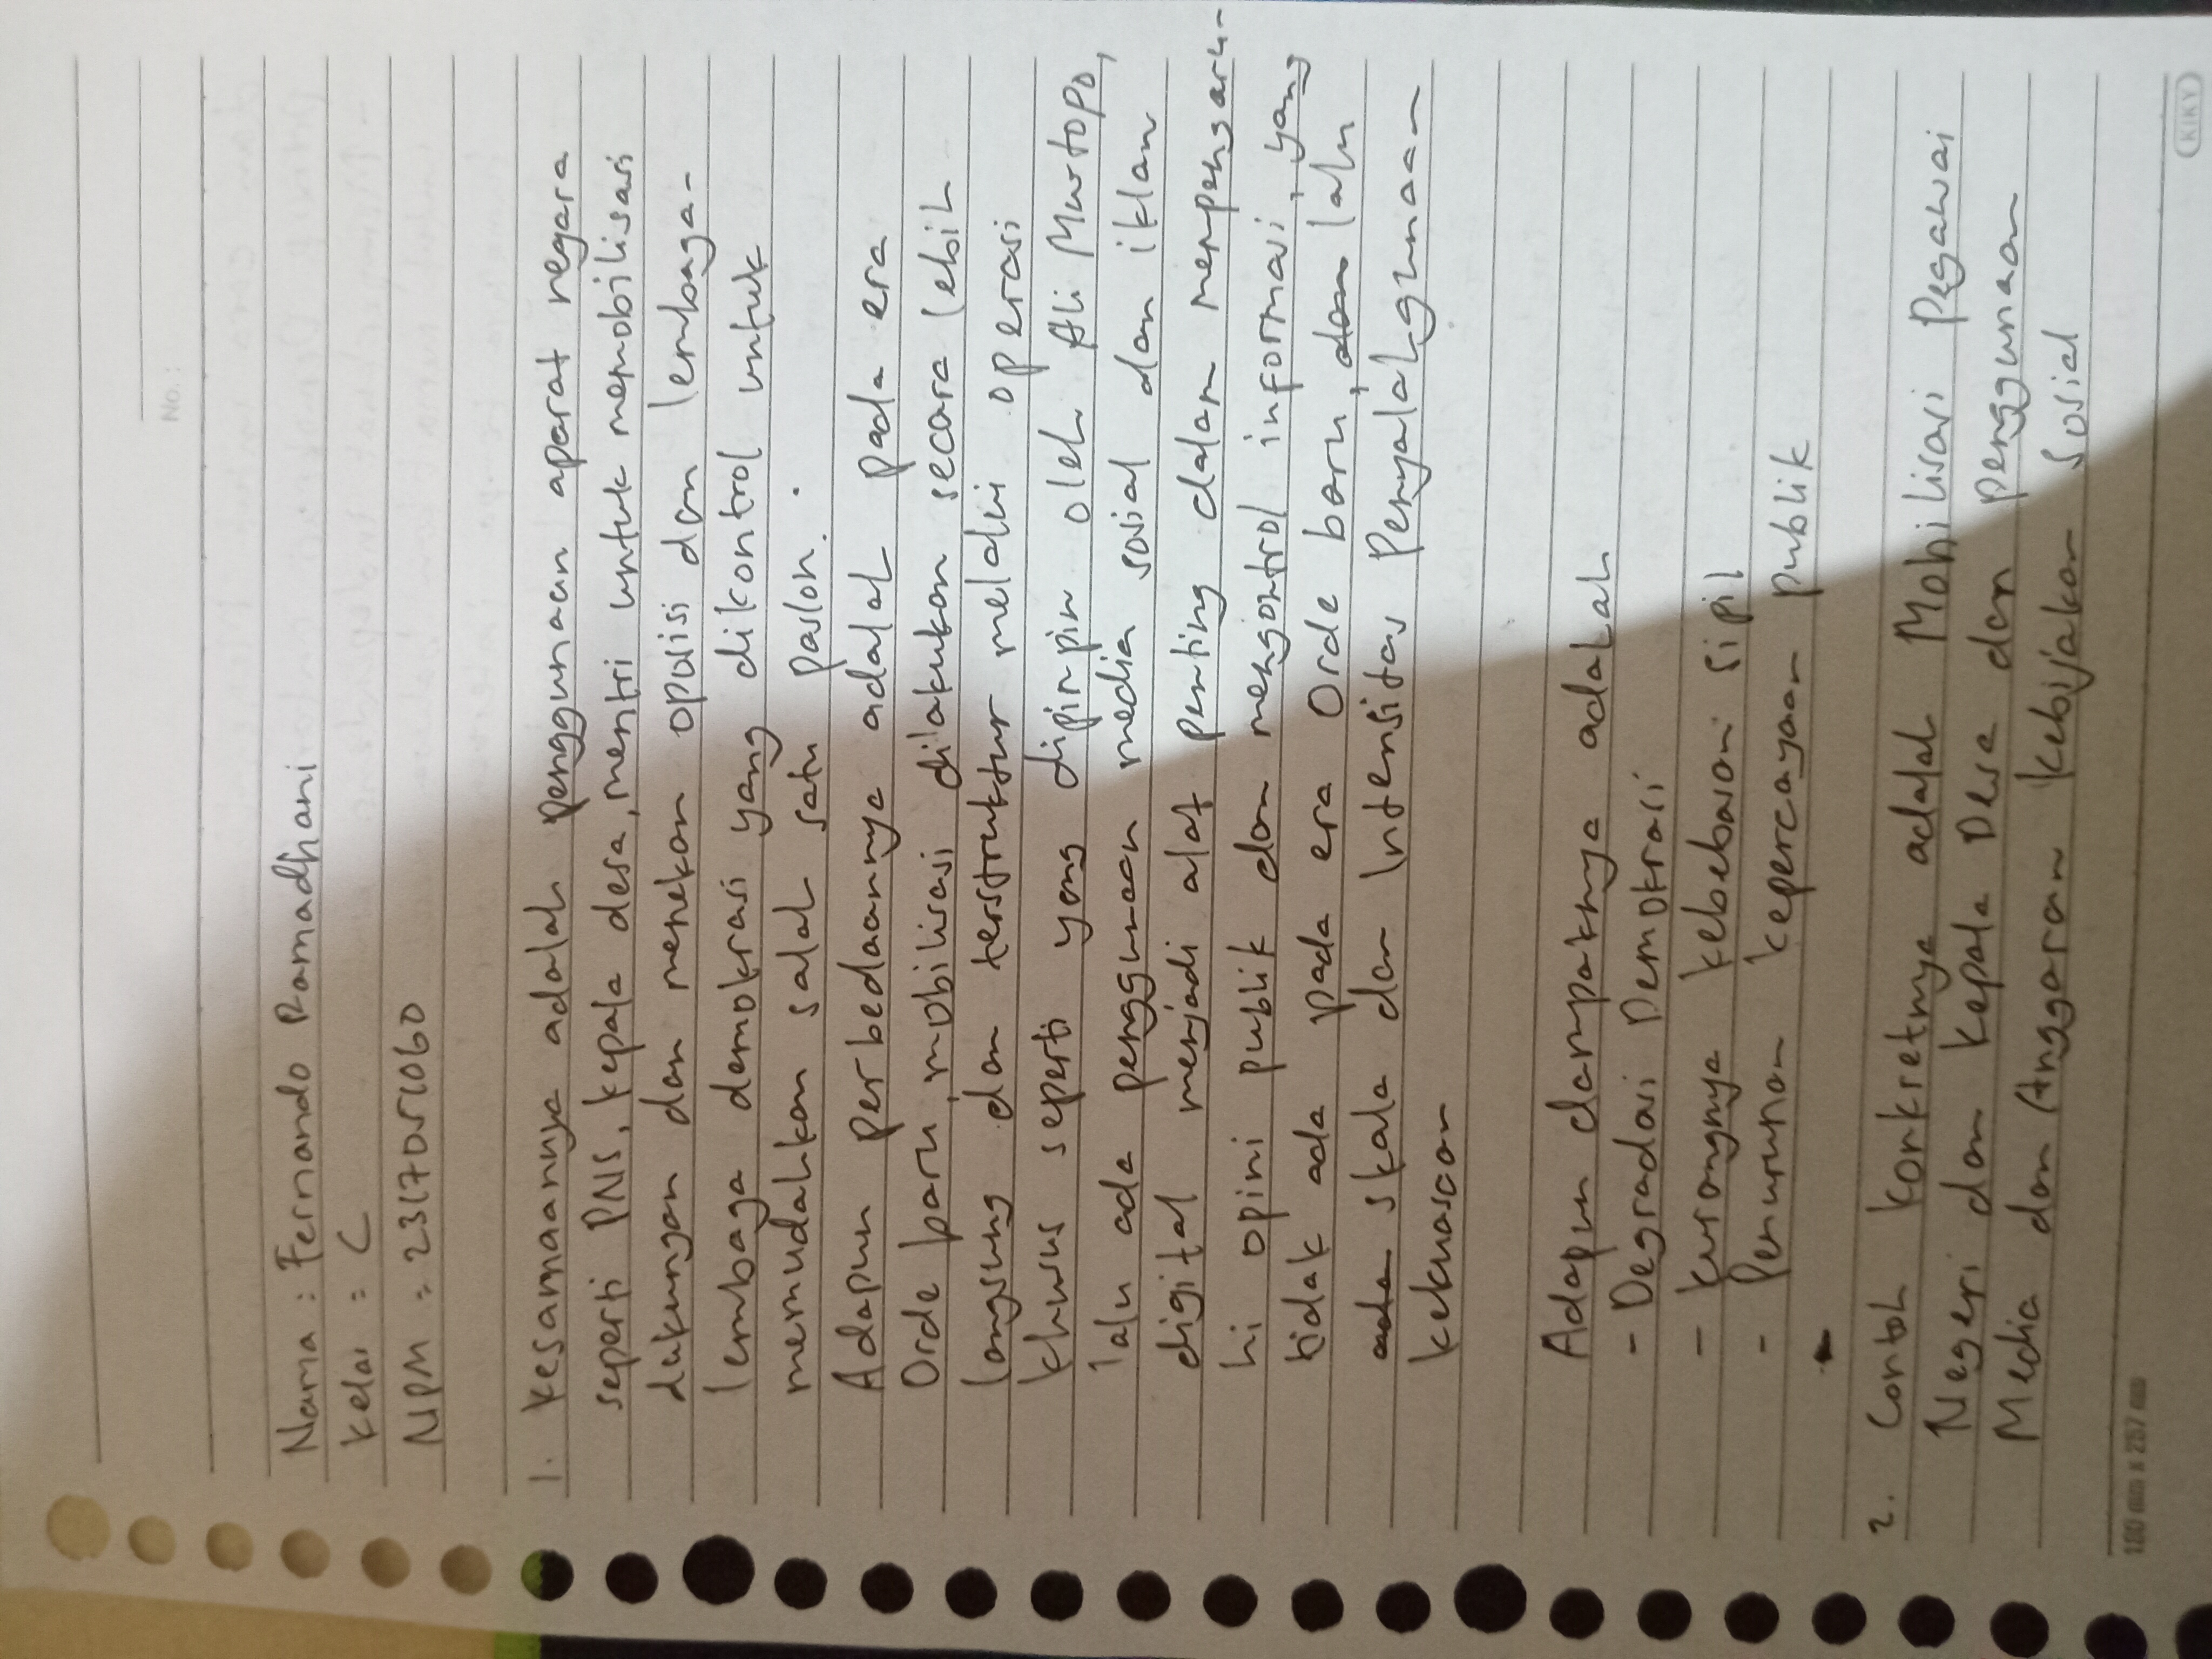 No. :
Nama : Fernando Ramadhani
Kelas : C
NPM : 2317051060
1. Kesamaannya adalah penggunaan aparat negara
seperti PNS, kepala desa, mentri untuk memobilisasi
dukungan dan menekan oposisi dan lembaga-
lembaga demokrasi yang dikontrol untuk
memudahkan salah satu paslon.
Adapun perbedaannya adalah pada era
Orde baru, mobilisasi dilakukan secara lebih
langsung dan terstruktur melalui operasi
khusus seperti yang dipimpin oleh Ali Murtopo,
lalu ada penggunaan media sosial dan iklan
digital menjadi alat penting dalam mempengaru-
hi opini publik dan mengontrol informasi, yang
tidak ada pada era Orde baru, dan lalu
ada skala dan Intensitas Penyalahgunaan
kekuasaan
Adapun dampaknya adalah
- Degradasi Demokrasi
- Kurangnya kebebasan sipil
- Penurunan kepercayaan publik
2. Contoh konkretnya adalah Mobilisasi Pegawai
Negeri dan Kepala Desa dan penggunaan
Media dan Anggaran Kebijakan Sosial
180 mm x 257 mm
KIKY